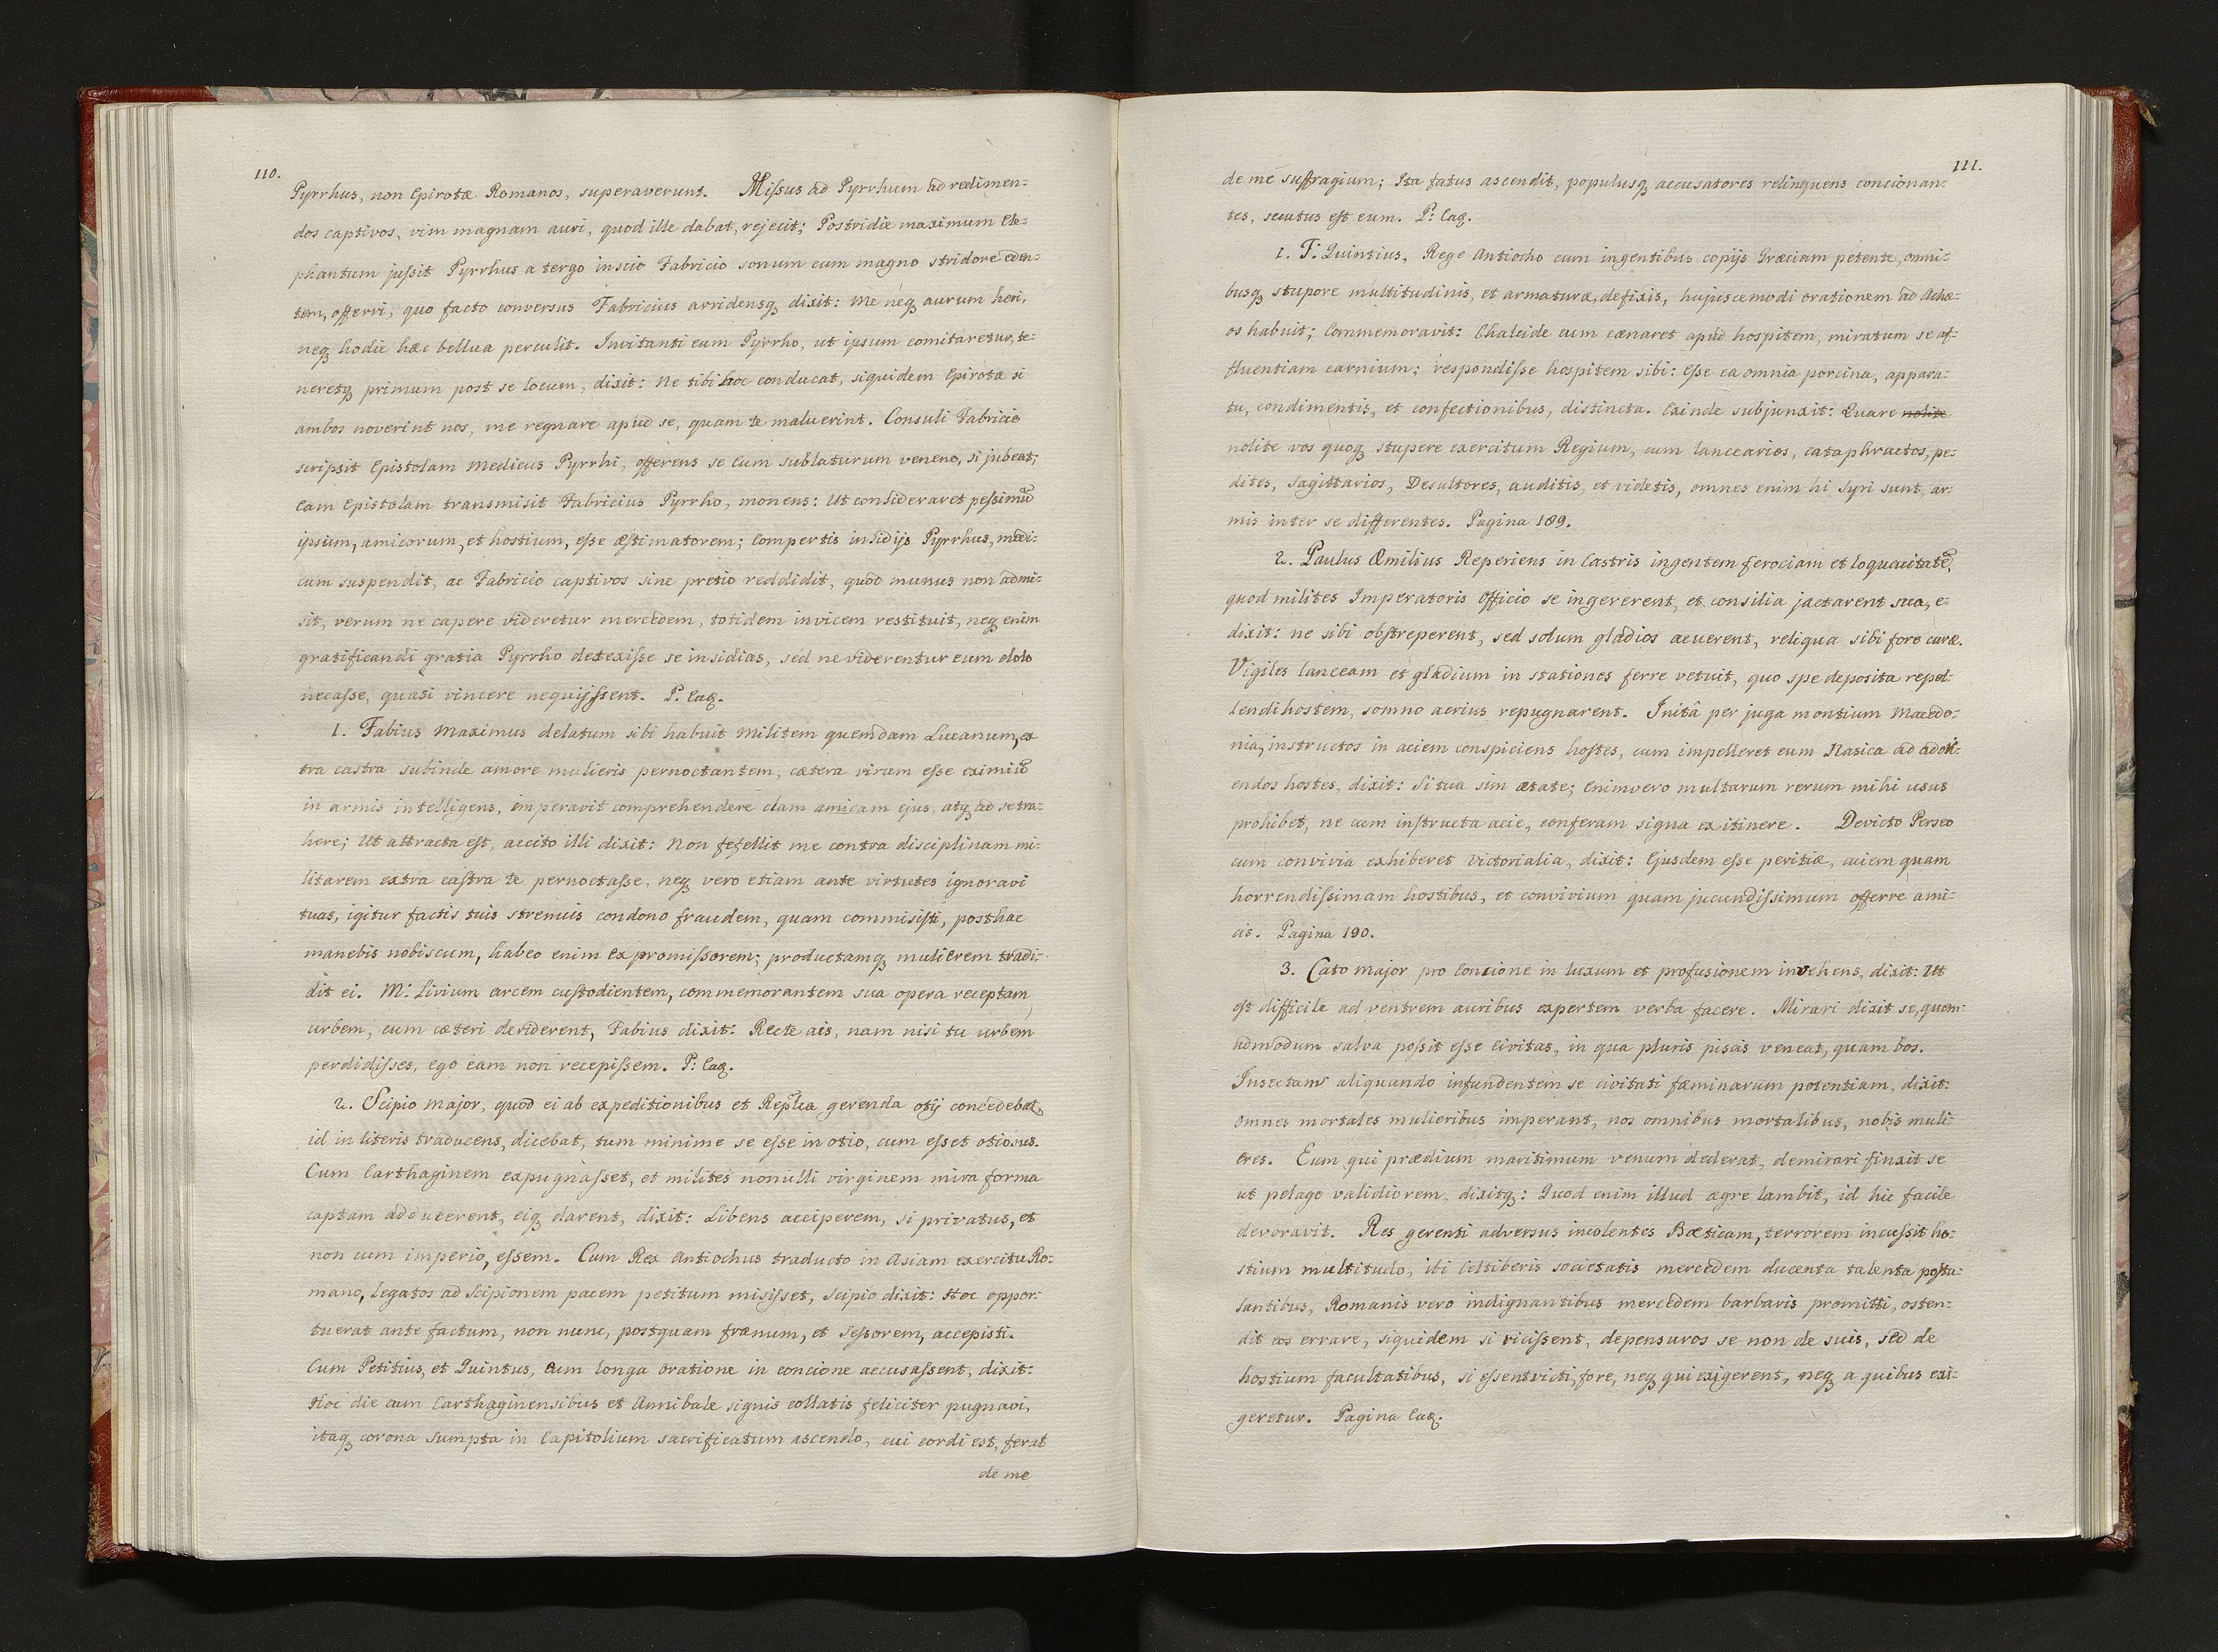 110.
Pyrrhus, non Epirotæ Romanos, superaverunt. Missus ad Pyrrhum ad redimen=
dos captivos, vim magnam auri, quod ille dabat, rejecit; Postridie maximum Ele=
phantum jussit Pyrrhus a tergo inscio Fabricio sonum cum magno stridore eden=
tem, offerri, quo facto conversus Fabricius arridensq; dixit: Me neq; aurum heri,
neq; hodie hæc bellua perculit. Invitanti eum Pyrrho, ut ipsum comitaretur, te=
neretq; primum post se locum, dixit: Ne tibi hoc conducat, siquidem Epirotæ si
ambos noverint nos, me regnare apud se, quam te maluerint. Consuli Fabricio
scripsit Epistolam Medicus Pyrrhi, offerens se Eum sublaturum veneno, si jubeat;
Eam Epistolam transmisit Fabricius Pyrrho, monens: Ut consideraret pessimū
ipsum, amicorum, et hostium, esse æstimatorem; Compertis insidijs Pyrrhus, medi=
cum suspendit, ac Fabricio captivos sine pretio reddidit, quod munus non admi=
sit, verum ne capere videretur mercedem, totidem invicem restituit, neq; enim
gratificandi gratia Pyrrho detexisse se insidias, sed ne viderentur eum dolo
necasse, quasi vincere nequijssent. P. Eaq.
1. Fabius Maximus delatum sibi habuit Militem quemdam Lucanum, ex
tra castra subinde amore mulieris pernoctantem, cætera virum esse eximiū
in armis intelligens, imperavit comprehendere clam amicam ejus, atq; ad se tra=
here; Ut attracta est, accito illi dixit: Non fefellit me contra disciplinam mi=
litarem extra castra te pernoctasse, neq; vero etiam ante virtutes ignoravi
tuas, igitur factis tuis strenuis condono fraudem, quam commisisti, posthac
manebis nobiscum, habeo enim Expromissorem; productamq; mulierem tradi=
dit ei. M: Livium arcem custodientem, commemorantem sua opera receptam
urbem, cum cæteri deriderent, Fabius dixit: Recte ais, nam nisi tu urbem
perdidisses, ego eam non recepissem. P: Eaq.
2. Scipio Major, quod ei ab expeditionibus et Rep̃lica gerenda otij concedebat,
id in literis traducens, dicebat, tum minime se esse in otio, cum esset otiosus.
Cum Carthaginem expugnasset, et milites nonulli virginem mira forma
captam adducerent, eiq; darent, dixit: Libens acciperem, si privatus, et
non cum imperio, essem. Cum Rex Antiochus traducto in Asiam exercitu Ro=
mano, legatos ad Scipionem pacem petitum misisset, Scipio dixit: Hoc oppor=
tuerat ante factum, non nunc, postquam frænum, et Sessorem, accepisti.
Cum Petitius, et Quintus, Eum longa oratione in concione accusassent, dixit:
Hoc die cum Carthaginensibus et Annibale signis collatis feliciter pugnavi,
itaq; corona sumpta in Capitolium sacrificatum ascendo, cui cordi est, ferat
de me
111.
de me suffragium; Ita fatus ascendit, populusq; accusatores relinquens concionan=
tes, secutus est eum. P: Eaq.
1. T: Quintius, Rege Antiocho cum ingentibus copijs Græciam petente, omni=
busq; stupore multitudinis, et armaturæ, defixis, hujuscemodi orationem ad Achæ=
os habuit; Commemoravit: Chalcide cum cænaret apud hospitem, miratum se af=
fluentiam carnium; respondisse hospitem sibi: Esse ea omnia porcina, appara=
tu, condimentis, et confectionibus, distincta. Exinde subjunxit: Quare nolite
nolite vos quoq; stupere exercitum Regium, cum lancearios, cataphractos, pe=
dites, Sagittarios, Desultores, auditis, et videtis, omnes enim hi Syri sunt, ar=
mis inter se differentes. Pagina 189.
2. Paulus Æmilius Reperiens in Castris ingentem ferociam et loquacitatē,
quod milites Imperatoris Officio se ingererent, et consilia jactarent sua, e=
dixit: ne sibi obstreperent, sed solum gladios acuerent, reliqua sibi fore curæ.
Vigiles lanceam et gladium in stationes ferre vetuit, quo spe deposita repel=
lendi hostem, somno acrius repugnarent. Initâ per juga montium Macedo=
nia, instructos in aciem conspiciens hostes, cum impelleret eum Nasica ad adori=
endos hostes, dixit: Si tua sim ætate; Enimvero multarum rerum mihi usus
prohibet, ne cum instructa acie, conferam signa ex itinere. Devicto Perseo
cum convivia exhiberet Victorialia, dixit: Ejusdem esse peritiæ, aciem quam
horrendissimam hostibus, et convivium quam jucundissimum offerre ami=
cis. Pagina 190.
3. Cato Major pro Concione in luxum et profusionem invehens, dixit: Ut
est difficile ad ventrem auribus expertem verba facere. Mirari dixit se, quem=
admodum salva possit esse Civitas, in qua pluris piscis veneat, quam bos.
Insectans aliquando infundentem se civitati fæminarum potentiam, dixit:
Omnes mortales mulieribus imperant, nos omnibus mortalibus, nobis muli=
eres. Eum qui prædium maritimum venum dederat, demirari finxit se
ut pelago validiorem, dixitq;: Quod enim illud ægre lambit, id hic facile
devoravit. Res gerenti adversus incolentes Bæticam, terrorem incussit ho=
stium multitudo, ibi Celtiberis societatis mercedem ducenta talenta postu=
lantibus, Romanis vero indignantibus mercedem barbaris promitti, osten=
dit eos errare, siquidem si vicissent, depensuros se non de suis, sed de
hostium facultatibus, si essent victi, fore, neq; qui exigerent, neq; a quibus exi=
geretur. Pagina Eaq.